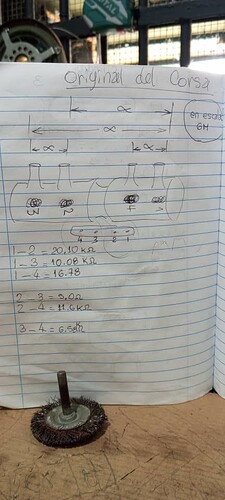 Original del Corsa
en escala
GM
α
α
α α
3 2 4 1
4 3 2 1
1-2 = 20,10 KΩ
1-3 = 10.08 KΩ
1-4 = 16.78
2-3 = 3,0Ω
2-4 = 11.6KΩ